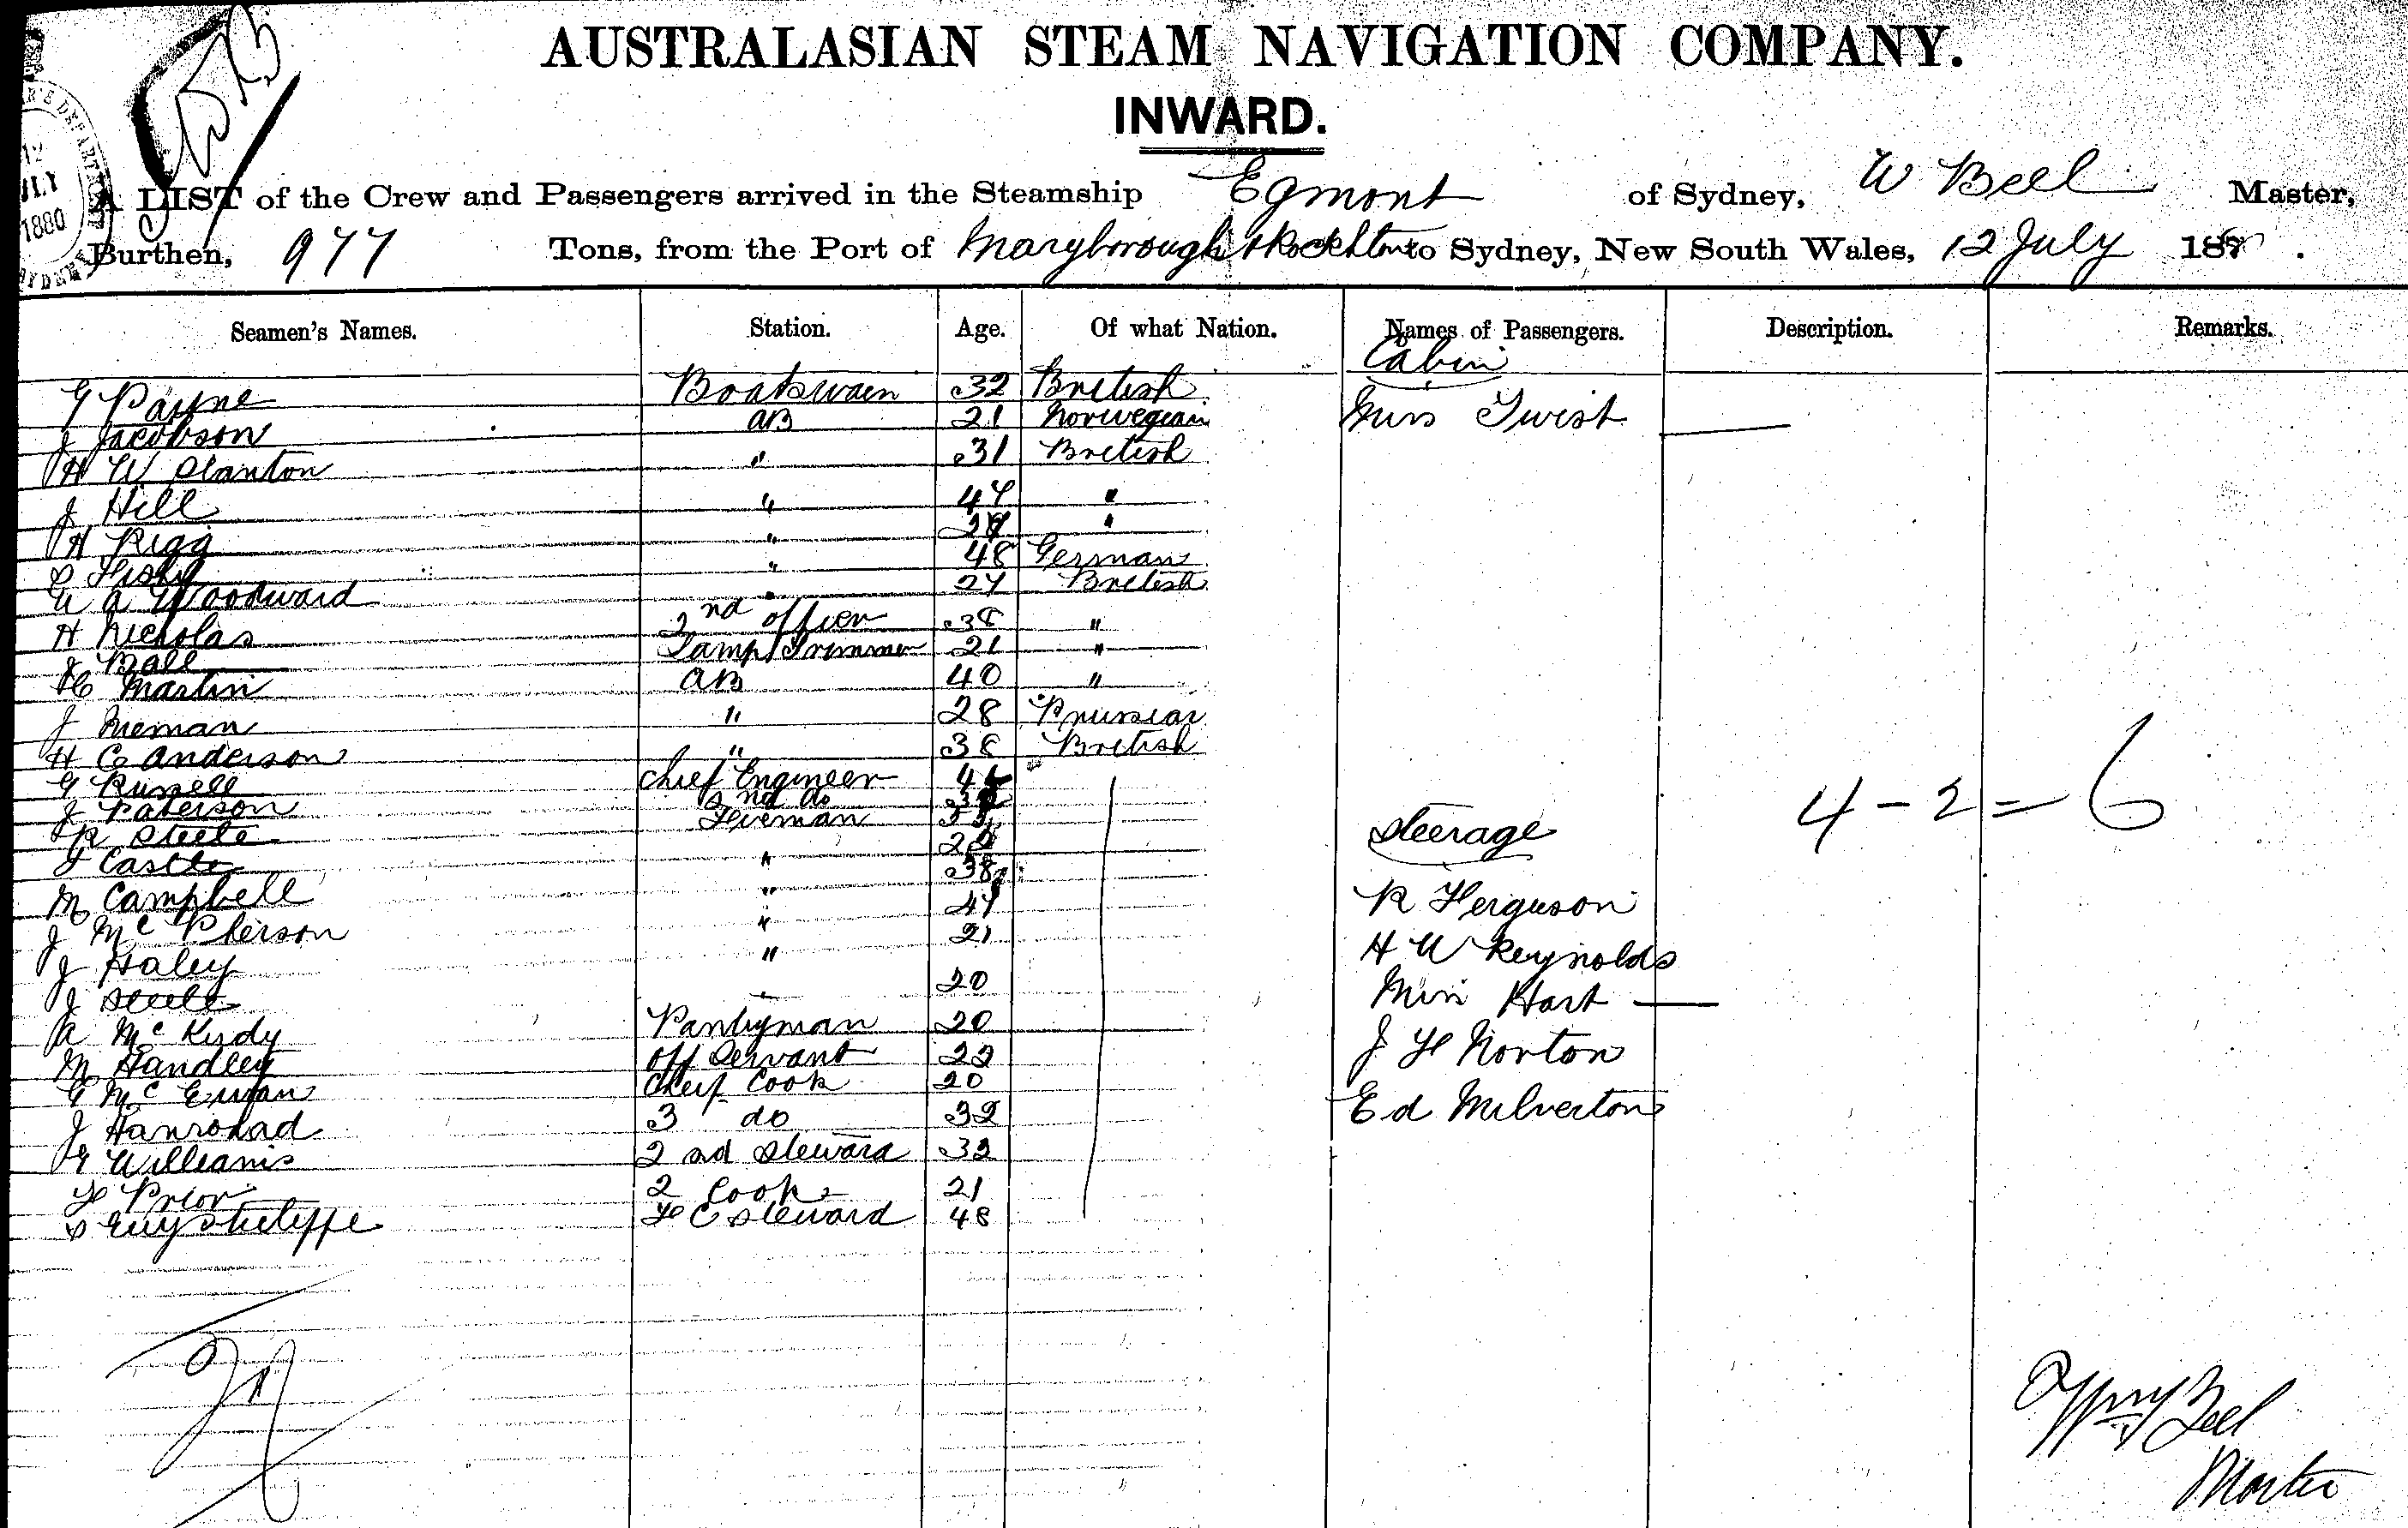 AUSTRALASIAN STEAM NAVIGATION COMPANY.
INWARD.
A LIST of the Crew and Passengers arrived in the Steamship Egmont of Sydney, W Beel Master,
Burthen, 977 Tons, from the Port of Maryborough & Rockhton to Sydney, New South Wales, 12 July 1880.
Seamen's Names. Station. Age. Of what Nation. Names of Passengers. Description. Remarks.
Cabin
G Payne Boatswain 32 British
J Jacobson AB 21 Norwegian Miss Twist
H W Stanton " 31 British
J Hill " 47 "
H Rigg " "
48 German
W A Woodward " 27 British
H Nicholas 2nd officer 38 "
J Ball Lamp Trimmer 21 "
H C Martin AB 40 "
J Nieman " 28 Prussian
H C Anderson " 38 British
G Russell Chief Engineer
J Paterson 2nd do
R Steele Fireman Steerage 4 - 2 = 6
J Castle "
M Campbell " R Ferguson
J McPherson " 21
J Haley " H W Reynolds
J Steele 20 Miss Hart
A McKirdy Pantryman 20
M Handley Off Servant 22 J F Norton
G McEwan Chief Cook 20
J Hanrohad 3 do 32 Ed Milverton
G Williams 2nd Steward 32
F Prior 2 Cook 21
F C Steward 48
Beel
Master
12
JLY
1880
SYDNEY